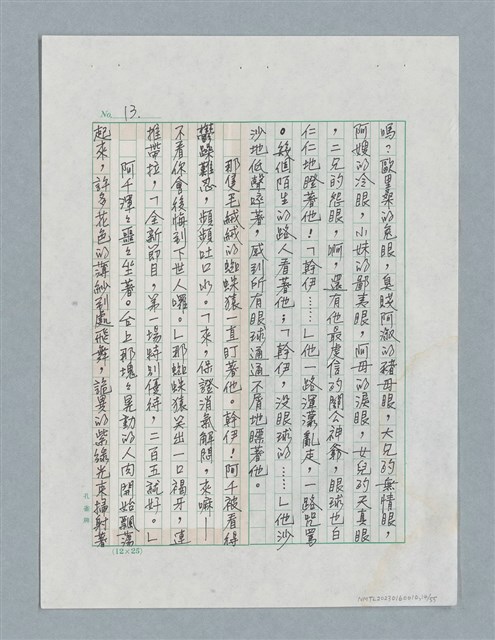 No. 13.
嗎？歐里桑的兎眼，臭賤阿淑的豬母眼，大兄的無情眼，
阿嫂的冷眼，小妹的鄙夷眼，阿母的淚眼，女兒的天真眼
，二兄的怨眼，啊，還有他最虔信的關公神爺，眼球也白
仁仁地瞪著他！「幹伊……」他一路渾濛亂走，一路咒罵
。幾個陌生的路人看著他；「幹伊，没眼球的……」他沙
沙地低聲啐著，感到所有眼球通通不屑地瞟著他。
那隻毛絨絨的蜘蛛猿一直盯著他。幹伊！阿千被看得
鬱躁難忍，頻頻吐口水。「來，保證消氣解悶，來嘛──
不看你會後悔到下世人囉。」那蜘蛛猿笑出一口褐牙，連
推帶拉，「全新節目，第一場特別優待，二百五就好。」
阿千渾々噩々坐著。台上那塊々晃動的人肉開始飄蕩
起來，許多花色的薄紗到處飛舞，詭異的紫綠光束掃射著
(12×25)
NMTL20230160010,14/55